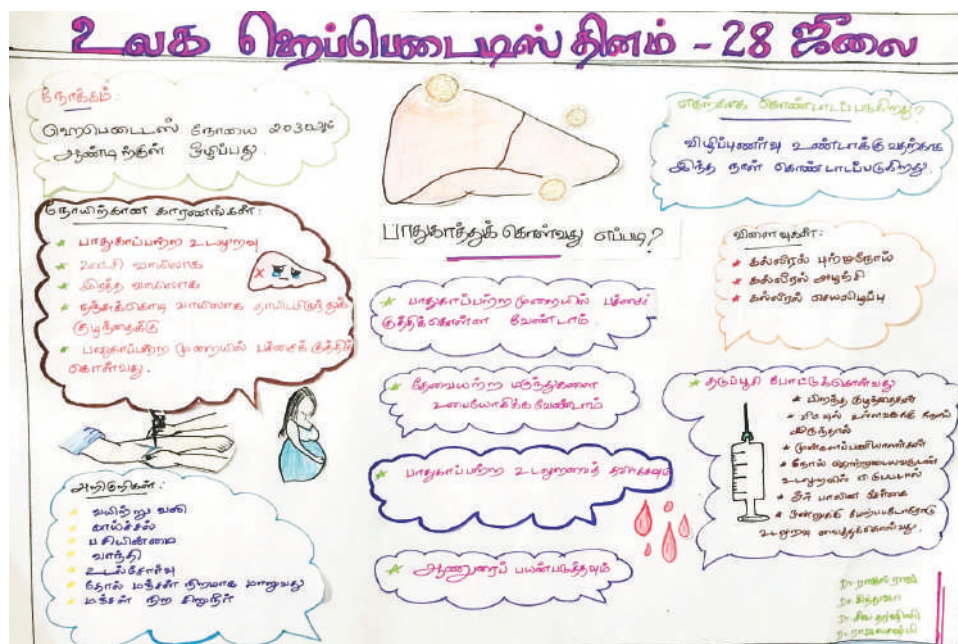 உலக ஹெப்பெடைடிஸ் தினம் - 28 ஜீலை
நோக்கம்:
ஹெபெடைடஸ் நோயை 2030ஆம்
ஆண்டிற்குள் ஒழிப்பது.
நோயிற்கான காரணங்கள்:
★ பாதுகாப்பற்ற உடலுறவு
★ ஊசி வாயிலாக
★ இரத்த வாயிலாக
★ நஞ்சுக்கொடி வாயிலாக தாயிடமிருந்து
குழந்தைக்கு
★ பாதுகாப்பற்ற முறையில் பச்சைக் குத்திக்
கொள்வது.
அறிகுறிகள்:
★ வயிற்று வலி
★ காய்ச்சல்
★ பசியின்மை
★ வாந்தி
★ உடல்சோர்வு
★ தோல் மஞ்சள் நிறமாக மாறுவது
★ மஞ்சள் நிற சிறுநீர்
பாதுகாத்துக் கொள்வது எப்படி?
★ பாதுகாப்பற்ற முறையில் பச்சை
குத்திக்கொள்ள வேண்டாம்.
★ தேவையற்ற மருந்துகளை
உபயோகிக்க வேண்டாம்
★ பாதுகாப்பற்ற உடலுறவைத் தவிர்க்கவும்
★ ஆணுறைப் பயன்படுத்தவும்
எதற்காக கொண்டாடப்படுகிறது?
விழிப்புணர்வு உண்டாக்குவதற்காக
இந்த நாள் கொண்டாடப்படுகிறது.
விளைவுகள்:
★ கல்லீரல் புற்றுநோய்
★ கல்லீரல் அழற்சி
★ கல்லீரல் செயலிழப்பு
★ தடுப்பூசி போட்டுக்கொள்வது
★ பிறந்த குழந்தைகள்
★ உள்ளவருக்கு நோய்
இருந்தால்
★ முன்களப்பணியாளர்கள்
★ நோய் தொற்றுடையவருடன்
உடலுறவில் ஈடுபட்டால்
★ ஓர் பாலின சேர்கை
★ மேற்பட்டோரோடு
உடலுறவு வைத்துக்கொள்வது.
Dr. ராகுல் ராஜ்
Dr.
Dr.
Dr. ராஜலட்சுமி